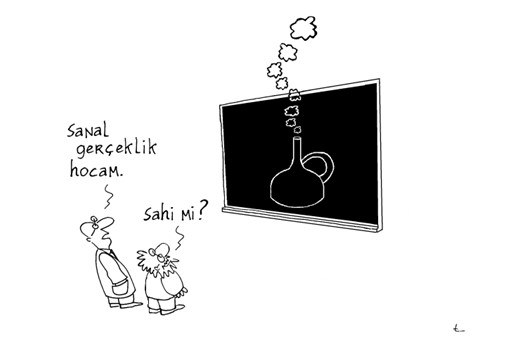 Sanal
gerçeklik
hocam.
Sahi mi?